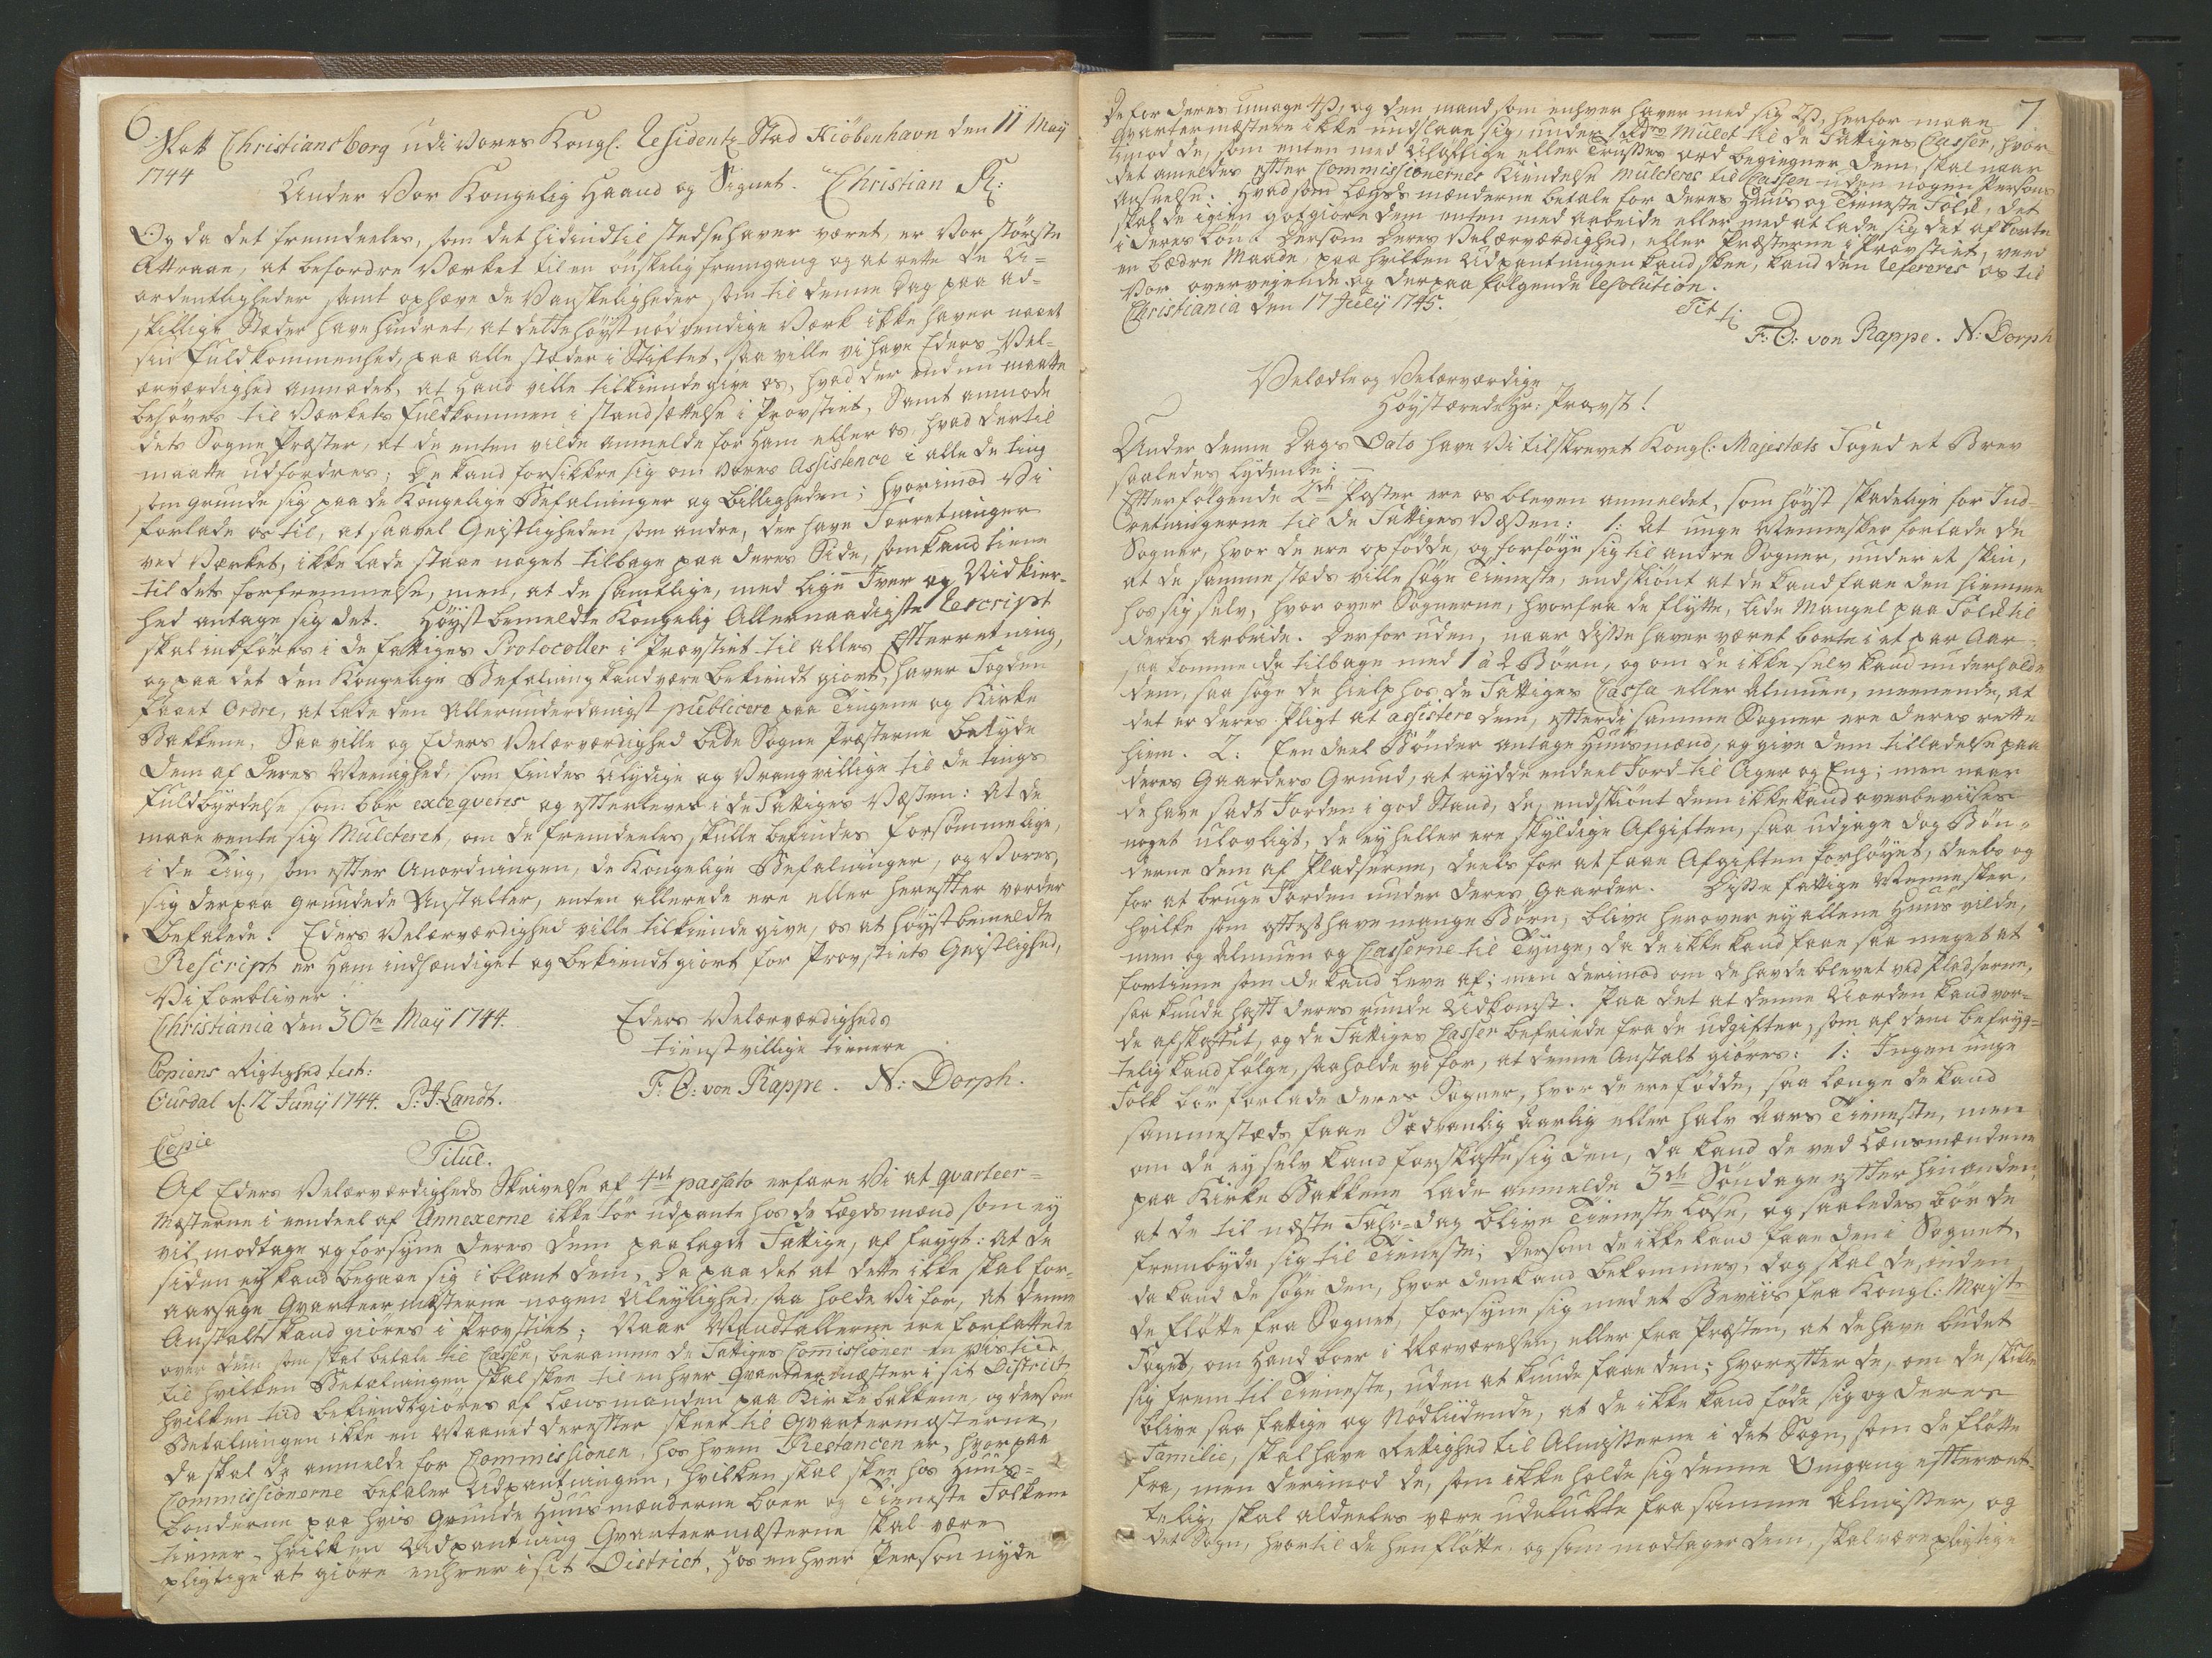 6.
Slott Christiansborg udi Vores Kongl. Residentz Stad Kiöbenhavn den 11 May
1744
Under Vor Kongelig Haand og Signet. Christian R:
Og da det fremdeeles, som det hidindtil stedsehaver været, er Vor störste
Attraae, at befordre Værket til en önskelig fremgang og at rette de U-
ordentligheder samt ophæve de Vanskeligheder som til denne Dag paa ad-
skillige Stæder have hindret, at dette höyst nödvendige Værk ikke haver naaet
din fuldkommenhed, paa alle stæder i Stiftet, saa ville vi have Eders Vel-
ærværdighed anmodet, at Hand ville tilkiendegive os, hvad der endnu maatte
behöves til Værkets fuldkommen i stand sættelse i Provstiet, Samt anmode
dets Sogne Præster, at de enten vilde anmelde for Ham eller os, hvad dertil
maatte udfordres; De kand forsikkre sig om vores Assistence i alle de ting
som grunde sig paa de Kongelige Befalninger og billigheden; hvorimod Vi
forlade os til, at saavel Geistligheden som andre, der have Forretninger
ved Værket, ikke lade staae noget tilbage paa deres Side, som kand tiene
til dets forfremmelse, men, at de samtlige, med lige Iver og Nidkier-
hed antage sig det. Höystbemeldte Kongelig Allernaadigste Rescript
skal indföres i de fattiges Protocoller i Provstiet til alles Efterretning,
og paa det den Kongelige Befalning kand være bekiendt giort, haver Fogden
faaet Ordre, at lade den Allerunderdanigst publicere paa Tingene og Kirke
Bakkene. Saa ville og Eders Velærværdighed bede Sogne Præsterne betyde
dem af deres Meenighed, som findes Ulydige og Vrangvillige til de tings
fuldbyrdelse som bör exceqveres og efterleves i de Fattiges Væsen: At de
maae vente sig Mulcteret, om de fremdeeles skulle befindes forsömmelige,
i de Ting, som efter Anordningen, de Kongelige Befalninger, og Vores,
sig derpaa grundede Anstalter, enten allerede ere eller herefter vorder
Befalede. Eders Velærværdighed ville tilkiende give, os at höystbemeldte
Rescript er Ham indhændiget og bekiendtgiort for Provstiets Geistlighed,
Vi forbliver
Christiania den 30te May 1744.
Eders Velærværdigheds
tienstvillige tienere
Copiens Rigtighed test:
F: O: von Rappe. N: Dorph.
Ourdal d. 12 Junij 1744. P: J. Landt.
Copie
Titul.
Af Eders Velærværdigheds Skrivelse af 4de passato erfare Vi at qvarteer-
Mesterne i eendeel af Annexerne ikke tör udpante hos de Lægdsmænd som ey
vil modtage og forsyne deres dem paalagde Fattige, af frygt: at de
siden ey kand begaae sig i blant dem, Da paa det at dette ikke skal for-
aarsage Qvarteermesterne nogen Uleylighed, saa holde Vi for, at denne
Anstalt kand giöres i Provstiet; Naar Mandtallerne ere forfattede
over dem som skal betale til Cassen, beramme de Fattiges Comissioner en vis tiid
til hvilken Betalningen skal skee til en hver Qvarteermæster i sit District
hvilken tiid bekiendtgiöres af Lænsmanden paa Kirkebakkene, og dersom
Betalningen ikke en Maaned derefter skeer til Qvartermesterne,
da skal de anmelde for Commissionen, hos hvem Restancen er, hvorpaa
Commissionerne befaler Udpantningen, hvilken skal skee hos Huus-
bonderne paa hvis Grunde Huusmænderne boer og Tieneste Folkene
tiener, hvilken Udpantning Qvarteermesterne skal være
pligtige at giöre enhver i sit District, Hos enhver Person nyde
7
De for deres umage 4ß, og den mand som enhver haver med sig 2ß, herfor maae
Qvartermestere ikke undslaae sig, under 1 Rdrs Mulct til de Fattiges Casser, hvor-
imod de, som enten med Uhöflige eller Trusels ord begiegner dem, skal naar
det anmeldes efter Commissionernes Kiendelse mulcteres til Cassen uden nogen Persons
Anseelse. Hvad som Lægds mænderne betale for deres Huus og Tieneste Folk, det
skal de igien godgiöre dem enten med arbeide eller med at lade sig det afkorte
i deres lön! Dersom Deres Velærværdighed, eller Præsterne i Provstiet, veed
en bædre Maade, paa hvilken Udpantningen kand skee, kand den refereres os til
Vor overvejende og derpaa følgende Resolution.
Christiania den 17 Julij 1745.
Tit
F: O: von Rappe. N: Dorph
Velædle og Velærværdige
Höystærede Hr: Provst!
Under denne Dags Dato have Vi tilskrevet Kongl: Majestæts Foged et Brev
saaledes lydende:
Efterfølgende 2de Poster ere os bleven anmeldet, som höyst skadelige for Ind-
retningerne til de Fattiges Væsen: 1: At unge Mennesker forlade de
Sogner, hvor de ere opfödde, og forföye sig til andre Sogner, under et skin,
at de sammestæds ville søge Tieneste, endskiönt at de kand faae den hiemme
hos sig selv, hvor over Sognerne, hvorfra de flytte, lide Mangel paa Folk til
deres arbeide. Derforuden, naar disse haver været borte i et par Aar
saa komme de tilbage med 1 à 2 Börn, og om de ikke selv kand underholde
dem, saa søge de hielp hos de Fattiges Cassa eller Almuen, meenende, at
det er deres Pligt at assistere dem, efterdi samme Sogner ere deres rette
hiem. 2: Een deel Bönder antage Huusmænd, og give dem tilladelse paa
deres Gaarders Grund, at rydde endeel Jord til Ager og Eng; men naar
de have sadt Jorden i god Stand, de, endskiönt dem ikke kand overbeviises
noget ulovligt, de ey heller ere skyldige Afgiften, saa udjage dog Bön-
derne dem af Pladserne, deels for at faae Afgiften forhöyet, deels og
for at bruge Jorden under deres Gaarder. Disse fattige Mennesker,
hvilke som oftest have mange Börn, blive herover ey allene Huus vilde,
men og Almuen og Casserne til Tynge, da de ikke kand faae saa meget at
fortiene som de kand leve af; men derimod om de havde blevet ved Pladserne,
saa kunde haft deres runde Udkomst. Paa det at denne Uorden kand vor-
de afskaffet, og de Fattiges Casser befriede fra de udgifter, som af dem befryg-
telig kand følge, saa holde vi for, at denne Anstalt giöres: 1: Ingen unge
Folk bör forlade deres Sogner, hvor de ere födde, saa længe de kand
sammestæds faae Sædvanlig Aarlig eller halv Aars Tieneste, men
om de ey selv kand forskaffe sig den, da kand de ved Lænsmændene
paa Kirke Bakkene lade anmelde 3de Söndage efter hinanden,
at de til næste Fahr-dag blive Tieneste löse, og saaledes bör de
frembyde sig til Tieneste; Dersom de ikke kand faae den i Sognet,
da kand de søge den, hvor den kand bekommes, dog skal de, inden
de flötte fra Sognet, forsyne sig med et Beviis fra Kongl: Majts
Foged, om Hand boer i Nærværelsen, eller fra Præsten, at de have budet
sig frem til Tieneste, uden at kunde faae den; hvorefter de, om de skulle
blive saa fattige og Nödliidende, at de ikke kand föde sig og deres
Familie, skal have Rettighed til Almisserne i det Sogn, som de flötte
fra, men derimod de, som ikke holde sig denne Omgang efterret-
telig, skal aldeeles være udelukte fra samme Almisser, og
det Sogn, hvortil de henflötte, og som modtager dem, skal være pligtige